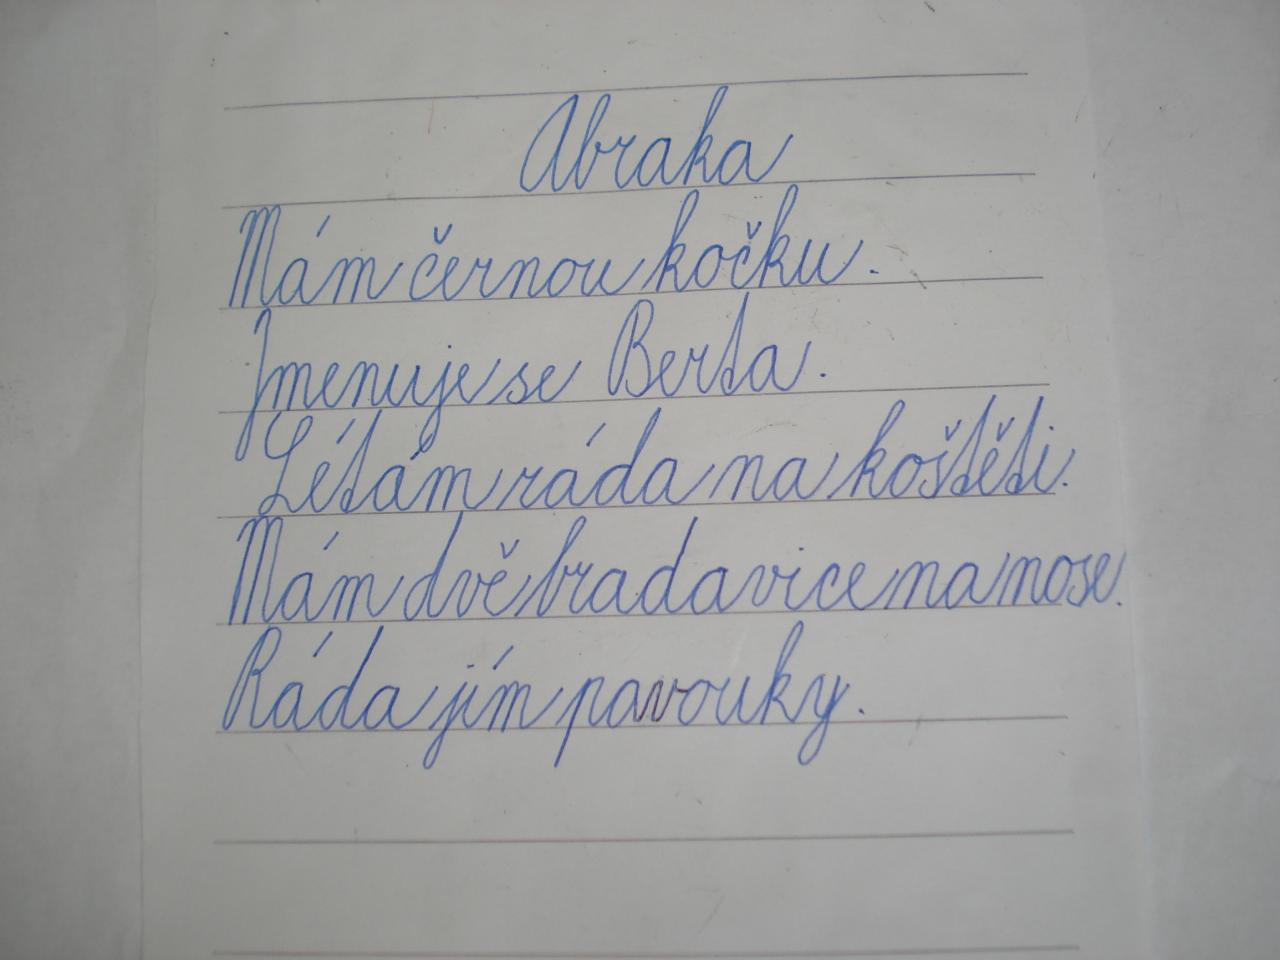 Abraka
Mám černou kočku.
Jmenuje se Berta.
Létám ráda na koštěti.
Mám dvě bradavice na nose.
Ráda jím pavouky.